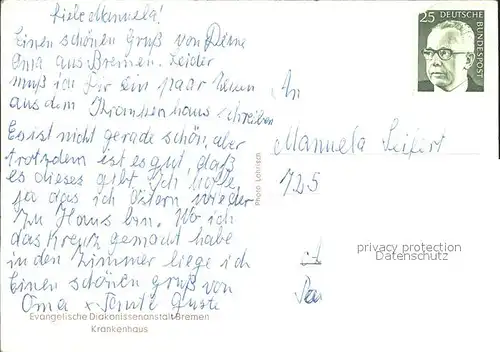 Liebe Manuela!
Einen schönen Gruß von Deine
Oma aus Bremen. Leider
muß ich Dir ein paar Zeilen
aus dem Krankenhaus schreiben
Es ist nicht gerade schön, aber
trotzdem ist es gut, daß
es dieses gibt. Ich hoffe,
ja das ich Ostern wieder
zu Haus bin. Wo ich
das Kreuz gemacht habe
in den Zimmer liege ich
Einen schönen gruß von
Oma x Tante Guste
Evangelische Diakonissenanstalt Bremen
Krankenhaus
Photo Lohrisch
25 DEUTSCHE
BUNDESPOST
An
Manuela Seifert
725
privacy protection
Datenschutz